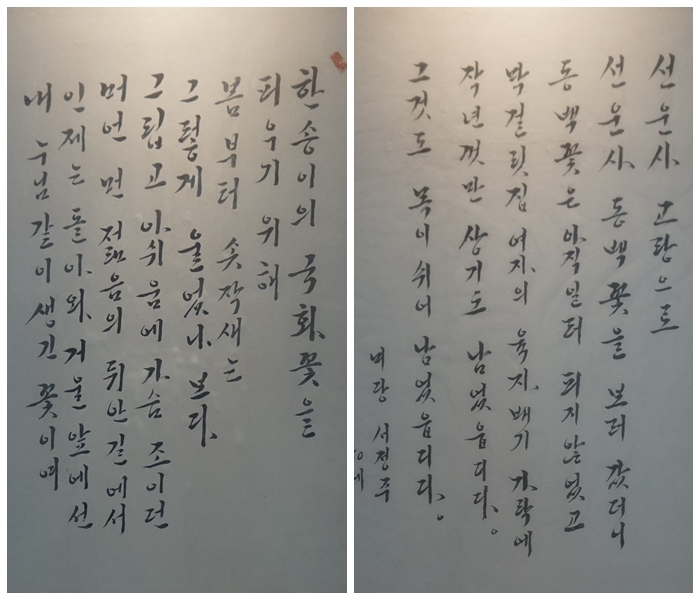 한 송이의 국화꽃을
피우기 위해
봄부터 솟작새는
그렇게 울었나 보다.
그립고 아쉬움에 가슴 조이던
머언 먼 젊음의 뒤안길에서
인제는 돌아와 거울 앞에 선
내 누님같이 생긴 꽃이여
선운사 고랑으로
선운사 동백꽃을 보러 갔더니
동백꽃은 아직 일러 피지 않었고
막걸릿집 여자의 육자배기 가락에
작년 것만 상기도 남었읍디다.
그것도 목이 쉬어 남었읍디다.
미당 서정주